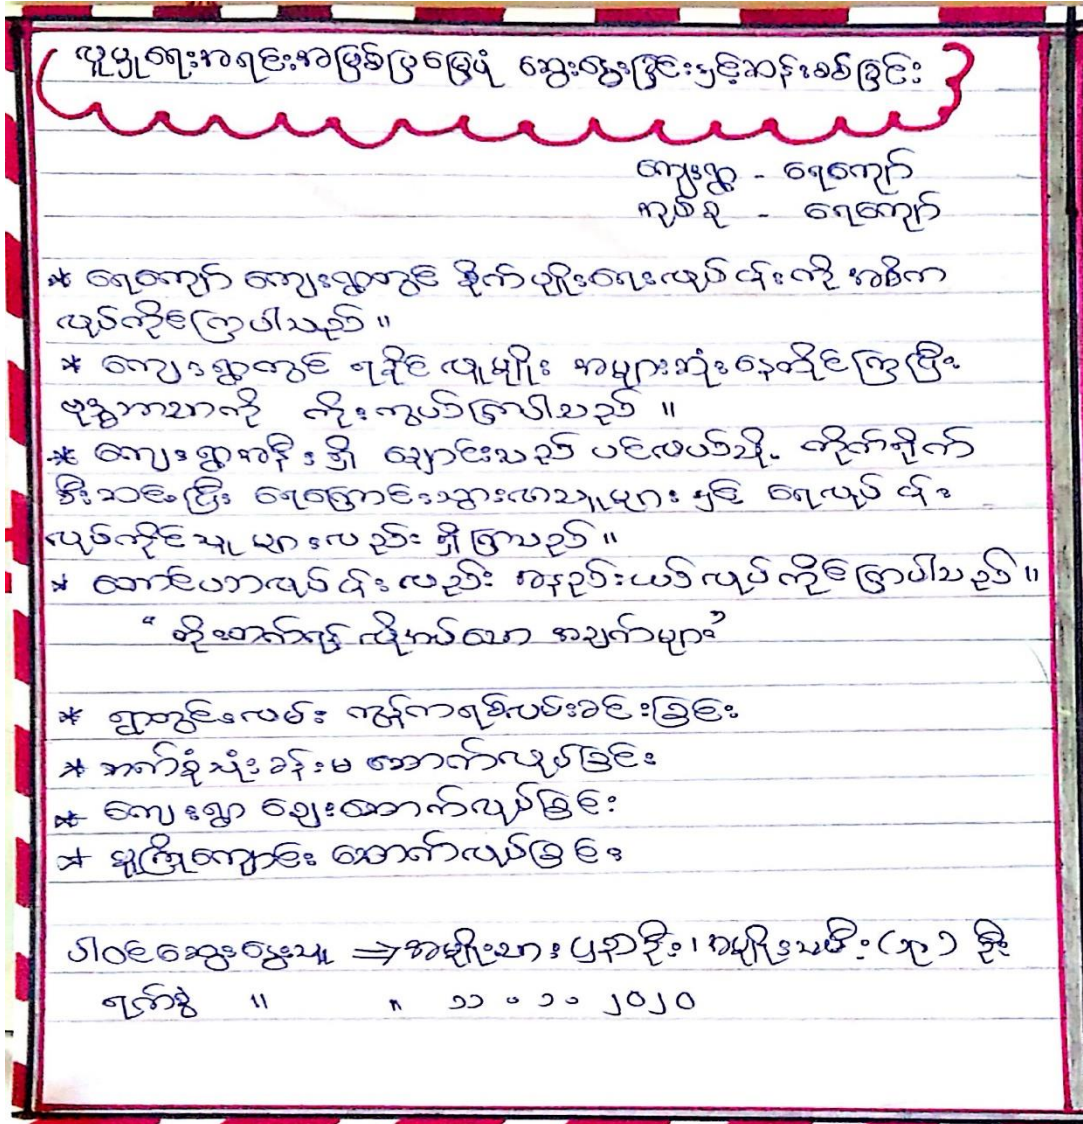 လူမှုရေးအရင်းအမြစ်ပြမြေပုံ ဆွေးနွေးခြင်းနှင့်ဆန်းစစ်ခြင်း
ကျေးရွာ - ရေကျော်
အုပ်စု - ရေကျော်
* ရေကျော် ကျေးရွာတွင် စိုက်ပျိုးရေးလုပ်ငန်းကို အဓိက
လုပ်ကိုင်ကြပါသည် ။
* ကျေးရွာတွင် ရခိုင် လူမျိုး အများဆုံးနေထိုင်ကြပြီး
ဗုဒ္ဓဘာသာကို ကိုးကွယ်ကြပါသည် ။
* ကျေးရွာအနီးရှိ ချောင်းသည် ပင်လယ်သို့ တိုက်ရိုက်
စီးဆင်းပြီး ရေကြောင်းသွားလာသူများ နှင့် ရေလုပ်ငန်း
လုပ်ကိုင်သူ များလည်း ရှိကြသည် ။
* တောင်ယာလုပ်ငန်းလည်း အနည်းငယ်လုပ်ကိုင်ကြပါသည် ။
" တိုးတက်ရန် လိုအပ်သော အချက်များ "
* ရွာတွင်းလမ်း ကွန်ကရစ်လမ်းခင်းခြင်း
* ဘက်စုံသုံးခန်းမ ဆောက်လုပ်ခြင်း
* ကျေးရွာ ဈေးဆောက်လုပ်ခြင်း
* မူကြိုကျောင်း ဆောက်လုပ်ခြင်း
ပါဝင်ဆွေးနွေးသူ ⇒ အမျိုးသား ဦး၊ အမျိုးသမီး ဦး
ရက်စွဲ ။ " ၁၁ - ၁ - ၂၀၂၀